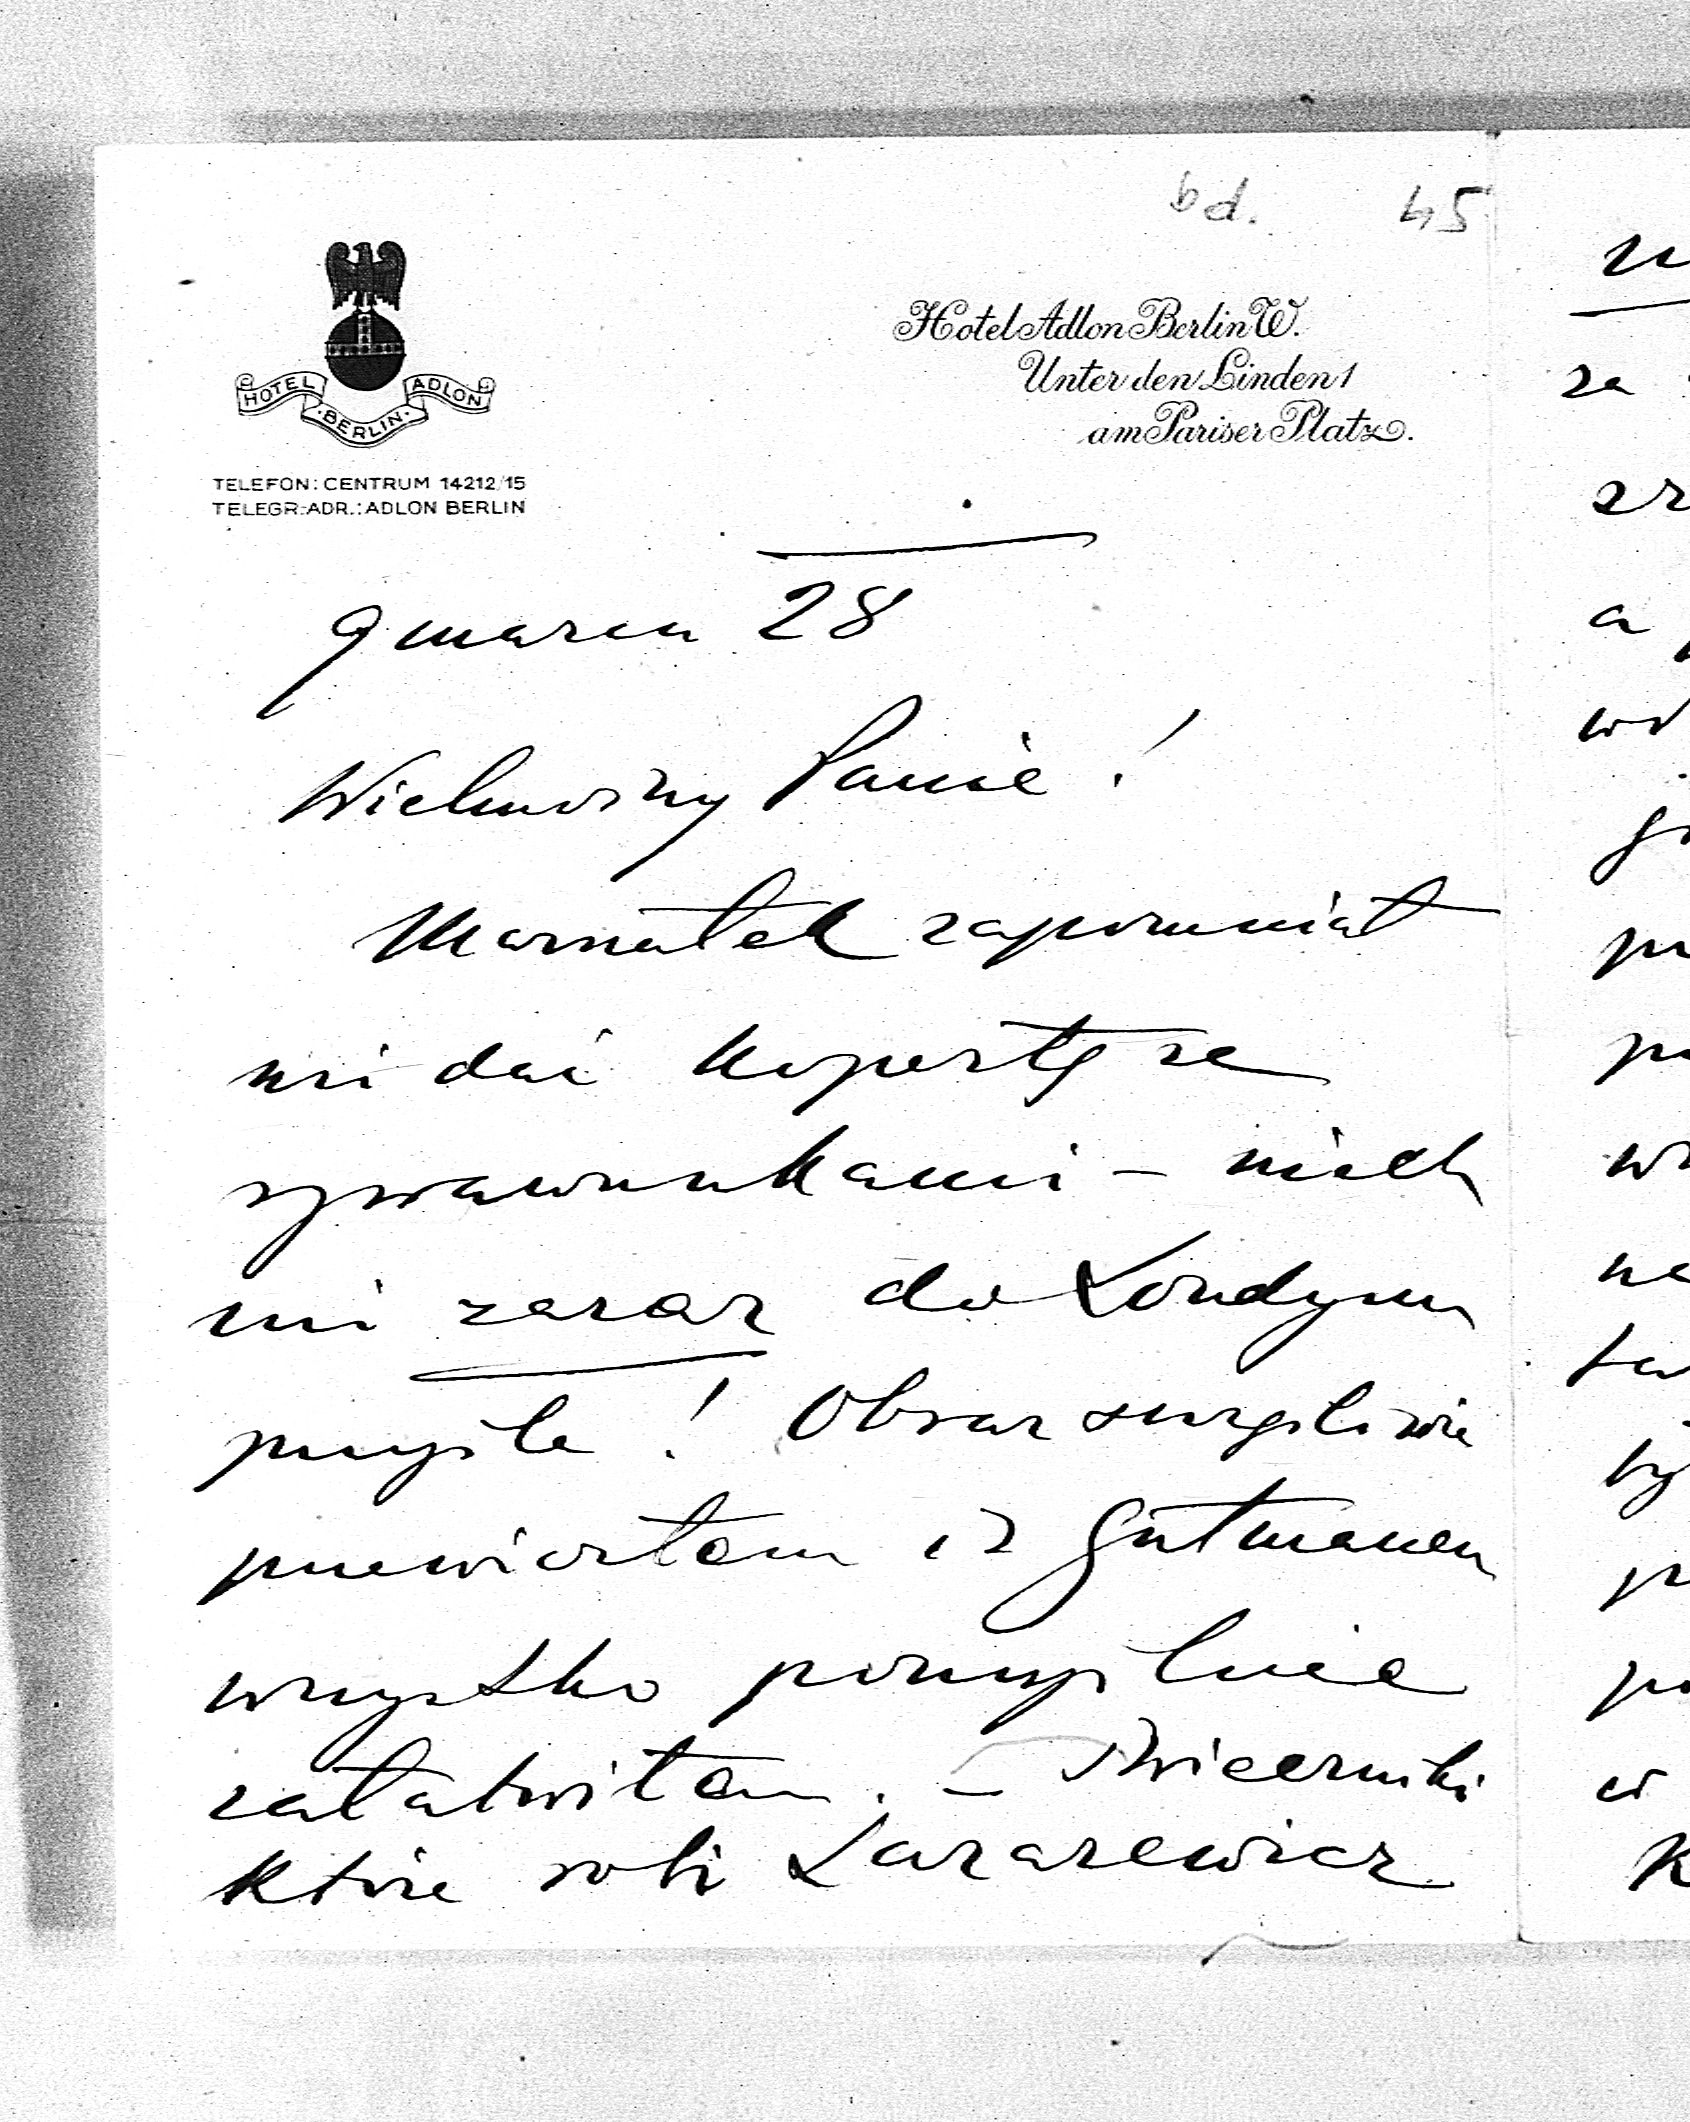 bd. 45
HOTEL ADLON
BERLIN
Hotel Adlon Berlin W.
Unter den Linden 1
am Pariser Platz.
TELEFON: CENTRUM 14212/15
TELEGR.-ADR.: ADLON BERLIN
9 marca 28
Wielmożny Panie!
zapomniał
mi dać kopertę ze
sprawunkami – niech
mi zaraz do Londynu
przyśle! Obraz szczęśliwie
przewiozłem i z Gutmanem
wszystko pomyślnie
załatwiłem. –
które robi Lazarewicz